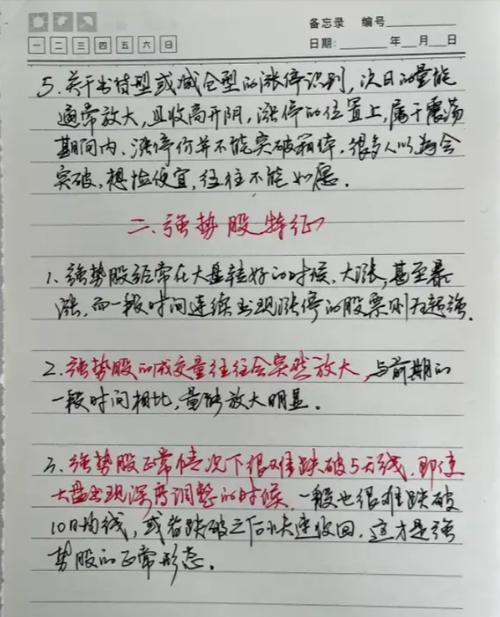 备忘录 编号
一 二 三 四 五 六 日 日期: 年 月 日
5、关于出货型或减仓型的涨停识别,次日的量能
通常放大,且收高开阴,涨停的位置上,属于震荡
期间内、涨停价并不能突破箱体,很多人以为会
突破,想捡便宜,往往不能如愿。
二、强势股特征
1、强势股经常在大盘转好的时候,大涨,甚至暴
涨,而一段时间连续出现涨停的股票则为超强.
2、强势股的成交量往往会突然放大,与前期的
一段时间相比,量能放大明显。
3、强势股正常情况下很难跌破5天线,即使
大盘出现深度调整的时候,一般也很难跌破
10日均线,或者跌破之后快速收回,这才是强
势股的正常形态。